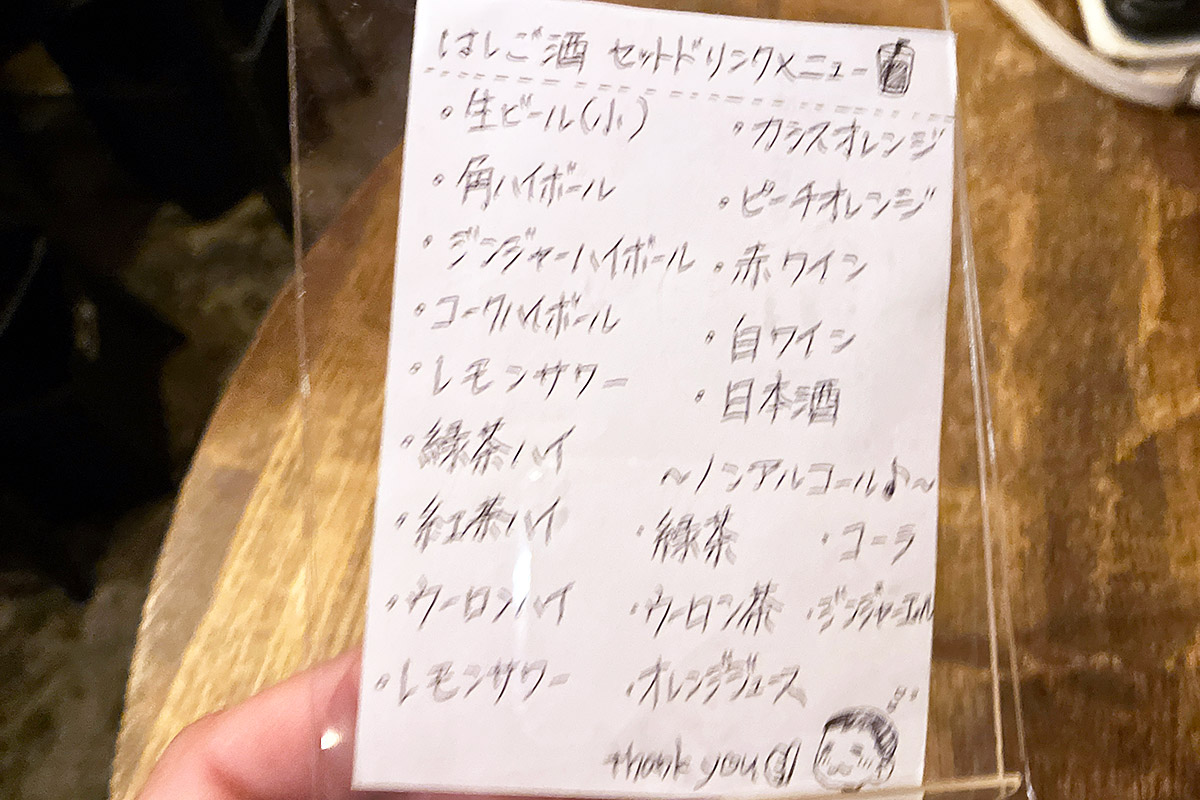 はしご酒 セットドリンクメニュー
・生ビール(小)
・角ハイボール
・ジンジャーハイボール
・コークハイボール
・レモンサワー
・緑茶ハイ
・紅茶ハイ
・ウーロンハイ
・レモンサワー
・カシスオレンジ
・ピーチオレンジ
・赤ワイン
・白ワイン
・日本酒
〜ノンアルコール♪〜
・緑茶 ・コーラ
・ウーロン茶 ・ジンジャーエール
・オレンジジュース
thank you